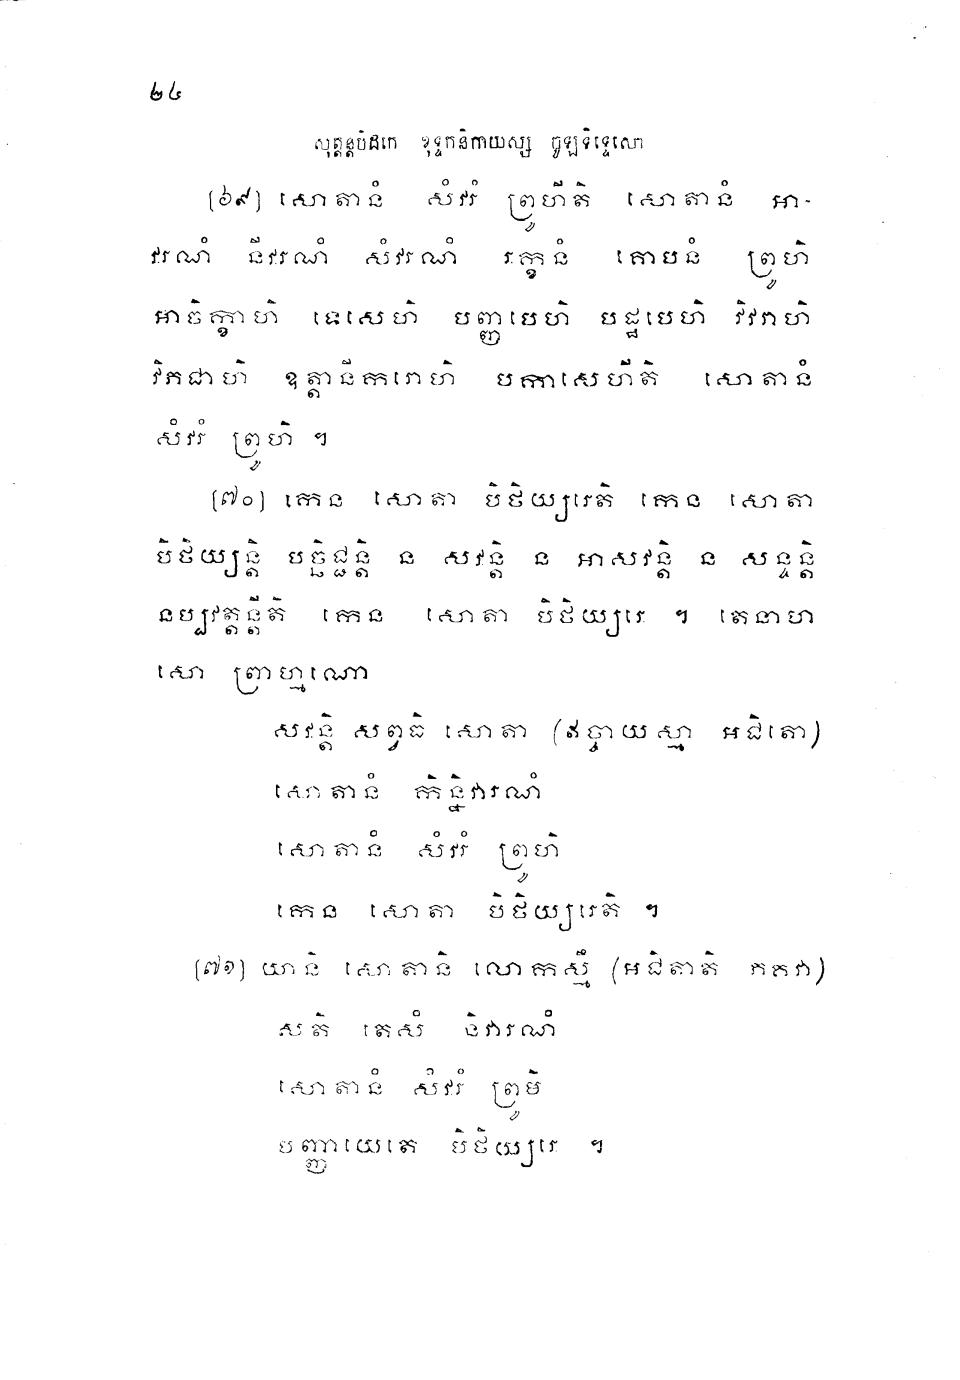 ២៤
សុត្តន្តបិដកេ ខុទ្ទកនិកាយស្ស ចូឡទិទ្ទេសោ
[៦៩] សោតានំ សំវរំ ព្រូហីតិ សោតានំ អា-
វរណំ នីវរណំ សំវរណំ រក្ខនំ គោបនំ ព្រូហិ
អាចិក្ខាហិ ទេសេហិ បញ្ញបេហិ បដ្ឋបេហិ វិវរាហិ
វិភជាហិ ឧត្តានីករោហិ បកាសេហីតិ សោតានំ
សំវរំ ព្រូហិ ។
[៧០] កេន សោតា បិថិយ្យរេតិ កេន សោតា
បិថិយ្យន្តិ បច្ឆិជ្ជន្តិ ន សវន្តិ ន អាសវន្តិ ន សន្ទន្តិ
នប្បវត្តន្តីតិ កេន សោតា បិថិយ្យរេ ។ តេនាហ
សោ ព្រាហ្មណោ
សវន្តិ សព្វធិ សោតា (ឥច្ចាយស្មា អជិតោ)
សោតានំ កិន្និវារណំ
សោតានំ សំវរំ ព្រូហិ
កេន សោតា បិថិយ្យរេតិ ។
[៧១] យានិ សោតានិ លោកស្មឹ (អជិតាតិ ភគវា)
សតិ តេសំ និវារណំ
សោតានំ សំវរំ ព្រូមិ
បញ្ញាយេតេ បិថិយ្យរេ ។